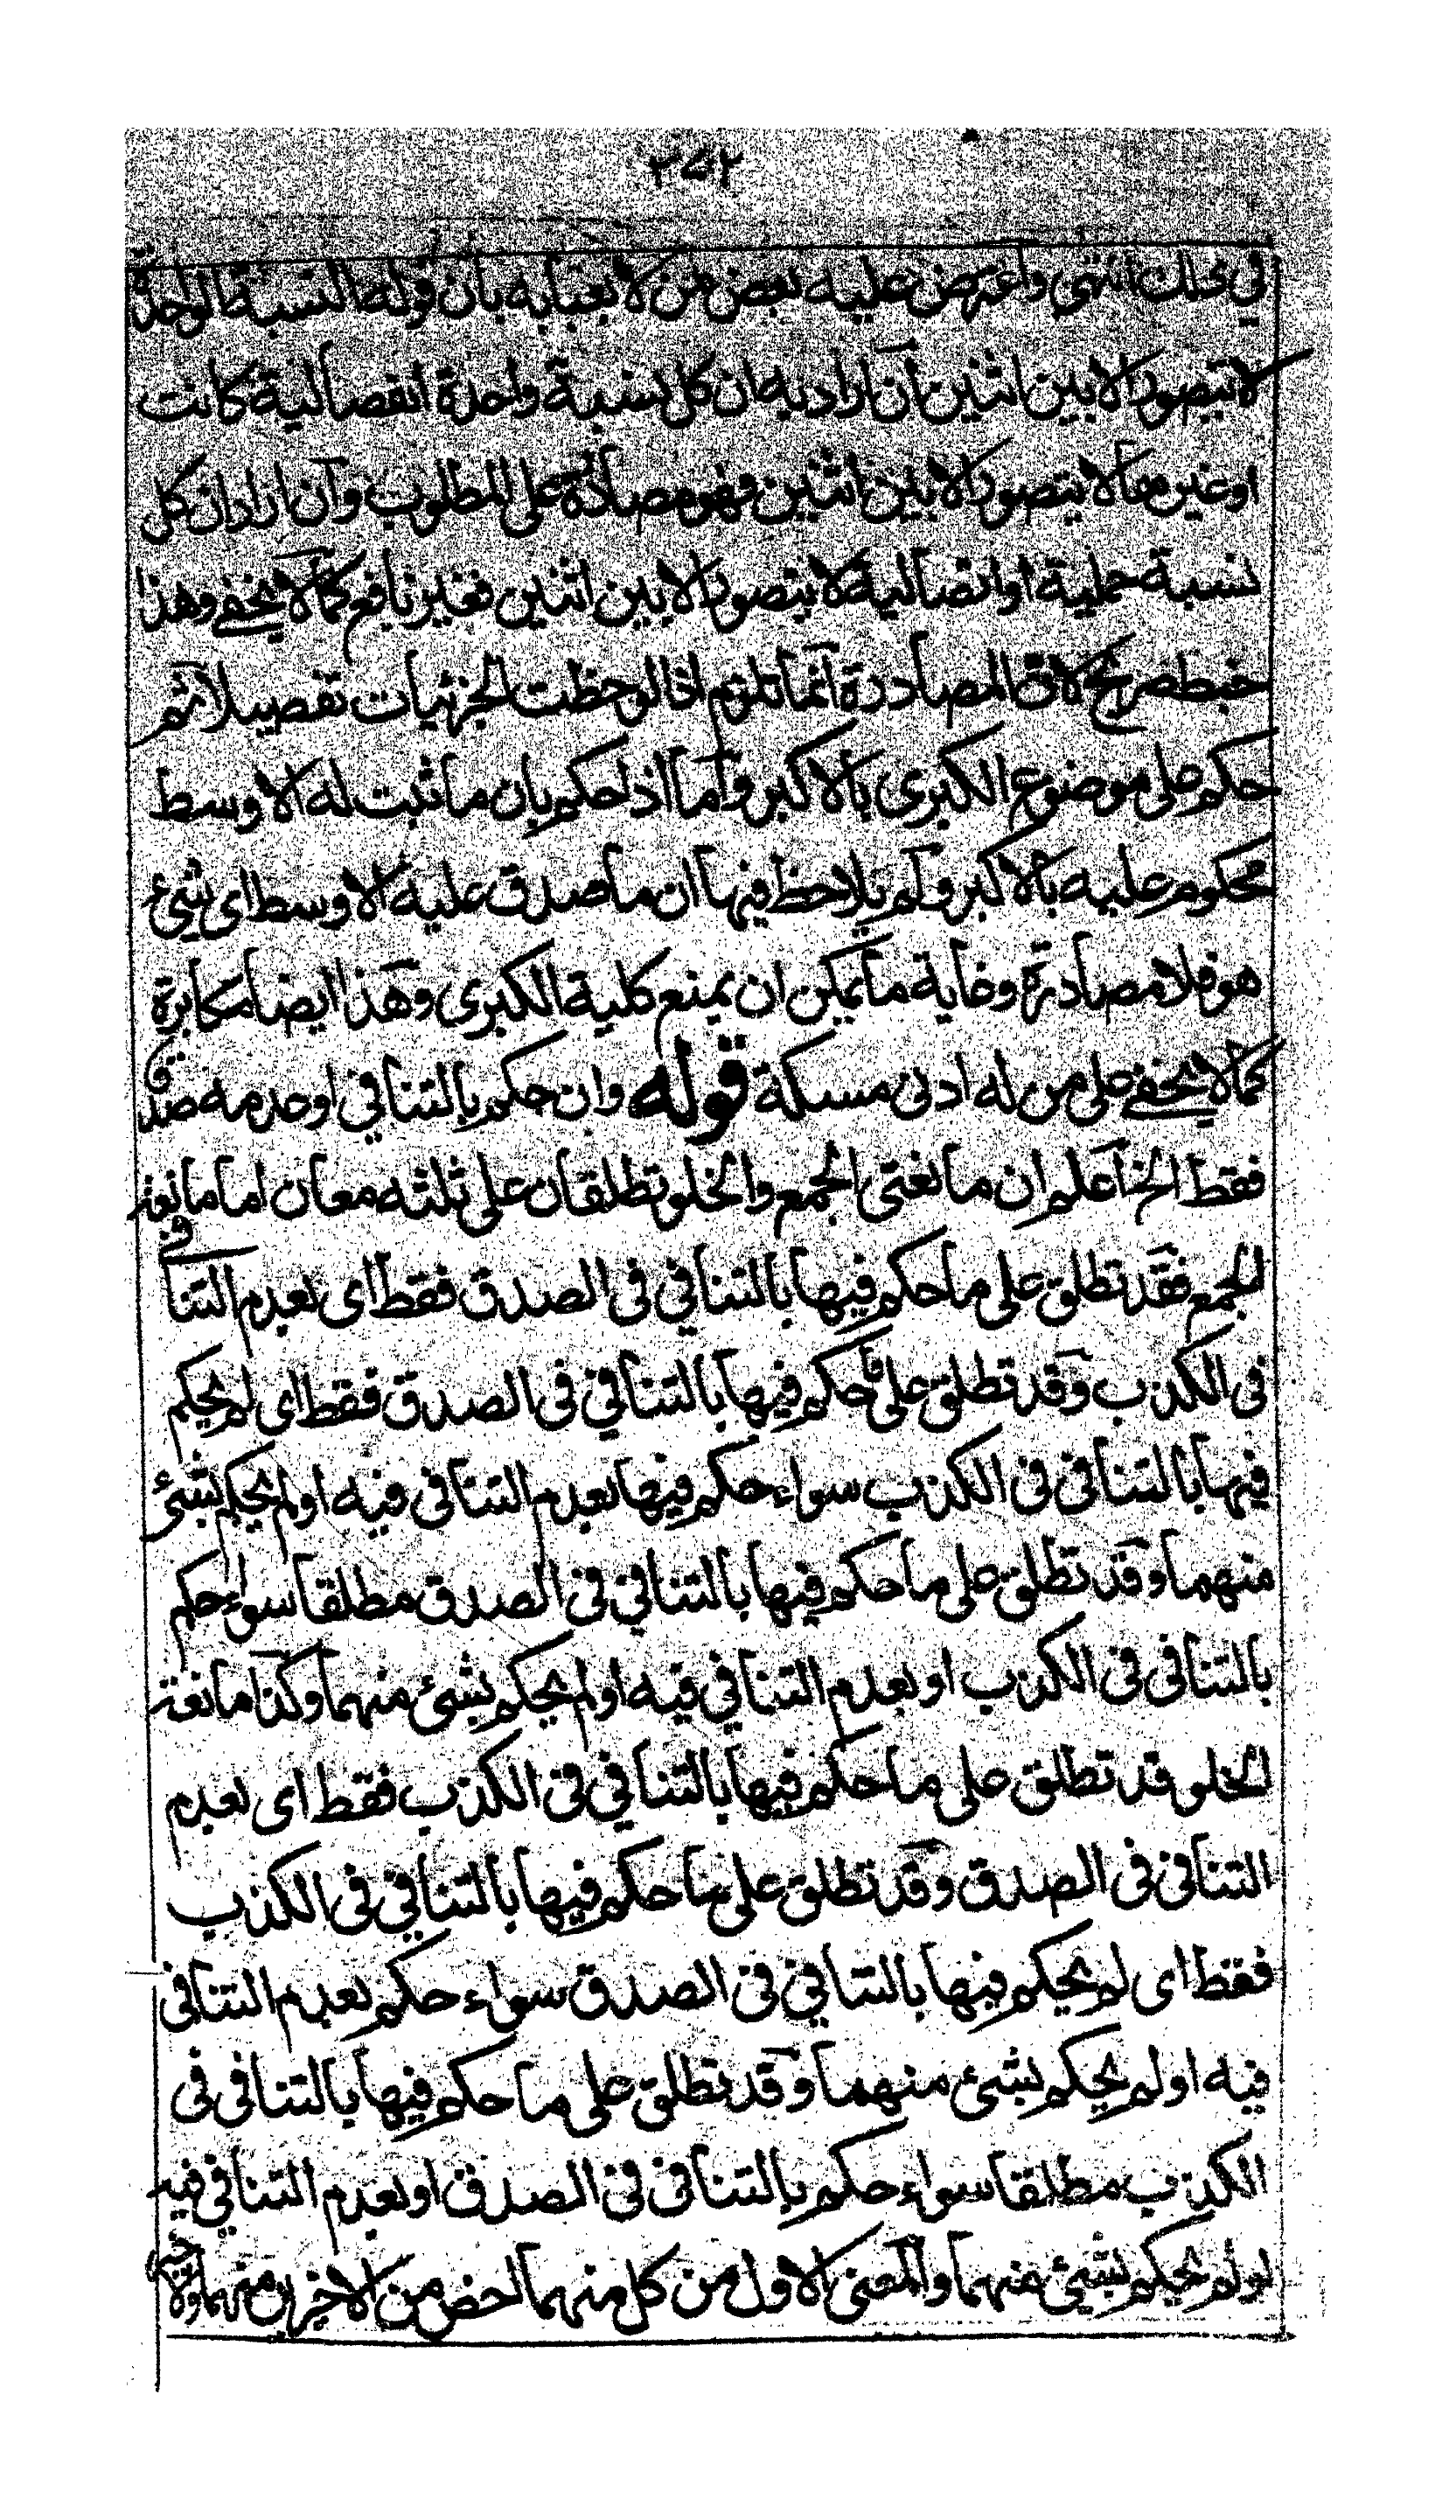 ٣٧٢
في محلك انتهى واعترض عليه بعض من لا يعبأ به بان قوله النسبة الواحدة
لا تتصور الا بين اثنين ان اراد به ان كل نسبة واحدة اتفصالية كانت
او غيرها لا يتصور الا بين اثنين فهو مصادرة على المطلوب وان اراد ان كل
نسبة حملية او اتصالية لا يتصور الا بين اثنين فغير نافع كما لا يخفى وهذا
خبط صريح لان المصادرة انما تلزم اذا لوحظت الجزئيات تفصيلا ثم
حكم على موضوع الكبرى بالاكبر واما اذا حكم بان ما ثبت له الاوسط
محكوم عليه بالاكبر ولم يلاحظ فيها ان ما صدق عليه الاوسط اي شيء
هو فلا مصادرة وغاية ما يمكن ان يمنع كلية الكبرى وهذا ايضا مكابرة
كما لا يخفى على من له ادنى مسكة قوله وان حكم بالتنافي او عدمه صدقا
فقط الخ اعلم ان مانعتى الجمع والخلو تطلقان على ثلثه معان اما مانعة
الجمع فقد تطلق على ما حكم فيها بالتنافي في الصدق فقط اى بعدم التنافي
في الكذب وقد تطلق على ما حكم فيها بالتنافي في الصدق فقط اى لم يحكم
فيها بالتنافي في الكذب سواء حكم فيها بعدم التنافي فيه او لم يحكم بشئ
منهما وقد تطلق على ما حكم فيها بالتنافي في الصدق مطلقا سواء حكم
بالتنافي في الكذب او بعدم التنافي فيه او لم يحكم بشئ منهما وكذا مانعة
الخلو قد تطلق على ما حكم فيها بالتنافي في الكذب فقط اى بعدم
التنافي في الصدق وقد تطلق على ما حكم فيها بالتنافي في الكذب
فقط اى لم يحكم فيها بالتنافي في الصدق سواء حكم بعدم التنافي
فيه او لم يحكم بشئ منهما وقد تطلق على ما حكم فيها بالتنافي في
الكذب مطلقا سواء حكم بالتنافي في الصدق او بعدم التنافي فيه
او لم يحكم بشيئ منهما والمعنى الاول من كل منهما اخص من الاخرين منهما